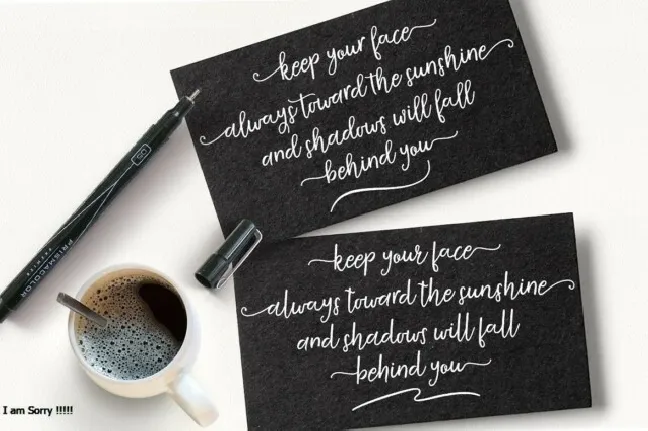 keep your face
always toward the sunshine
and shadows will fall
behind you
PRISMACOLOR
PREMIER
05
keep your face
always toward the sunshine
and shadows will fall
behind you
I am Sorry !!!!!